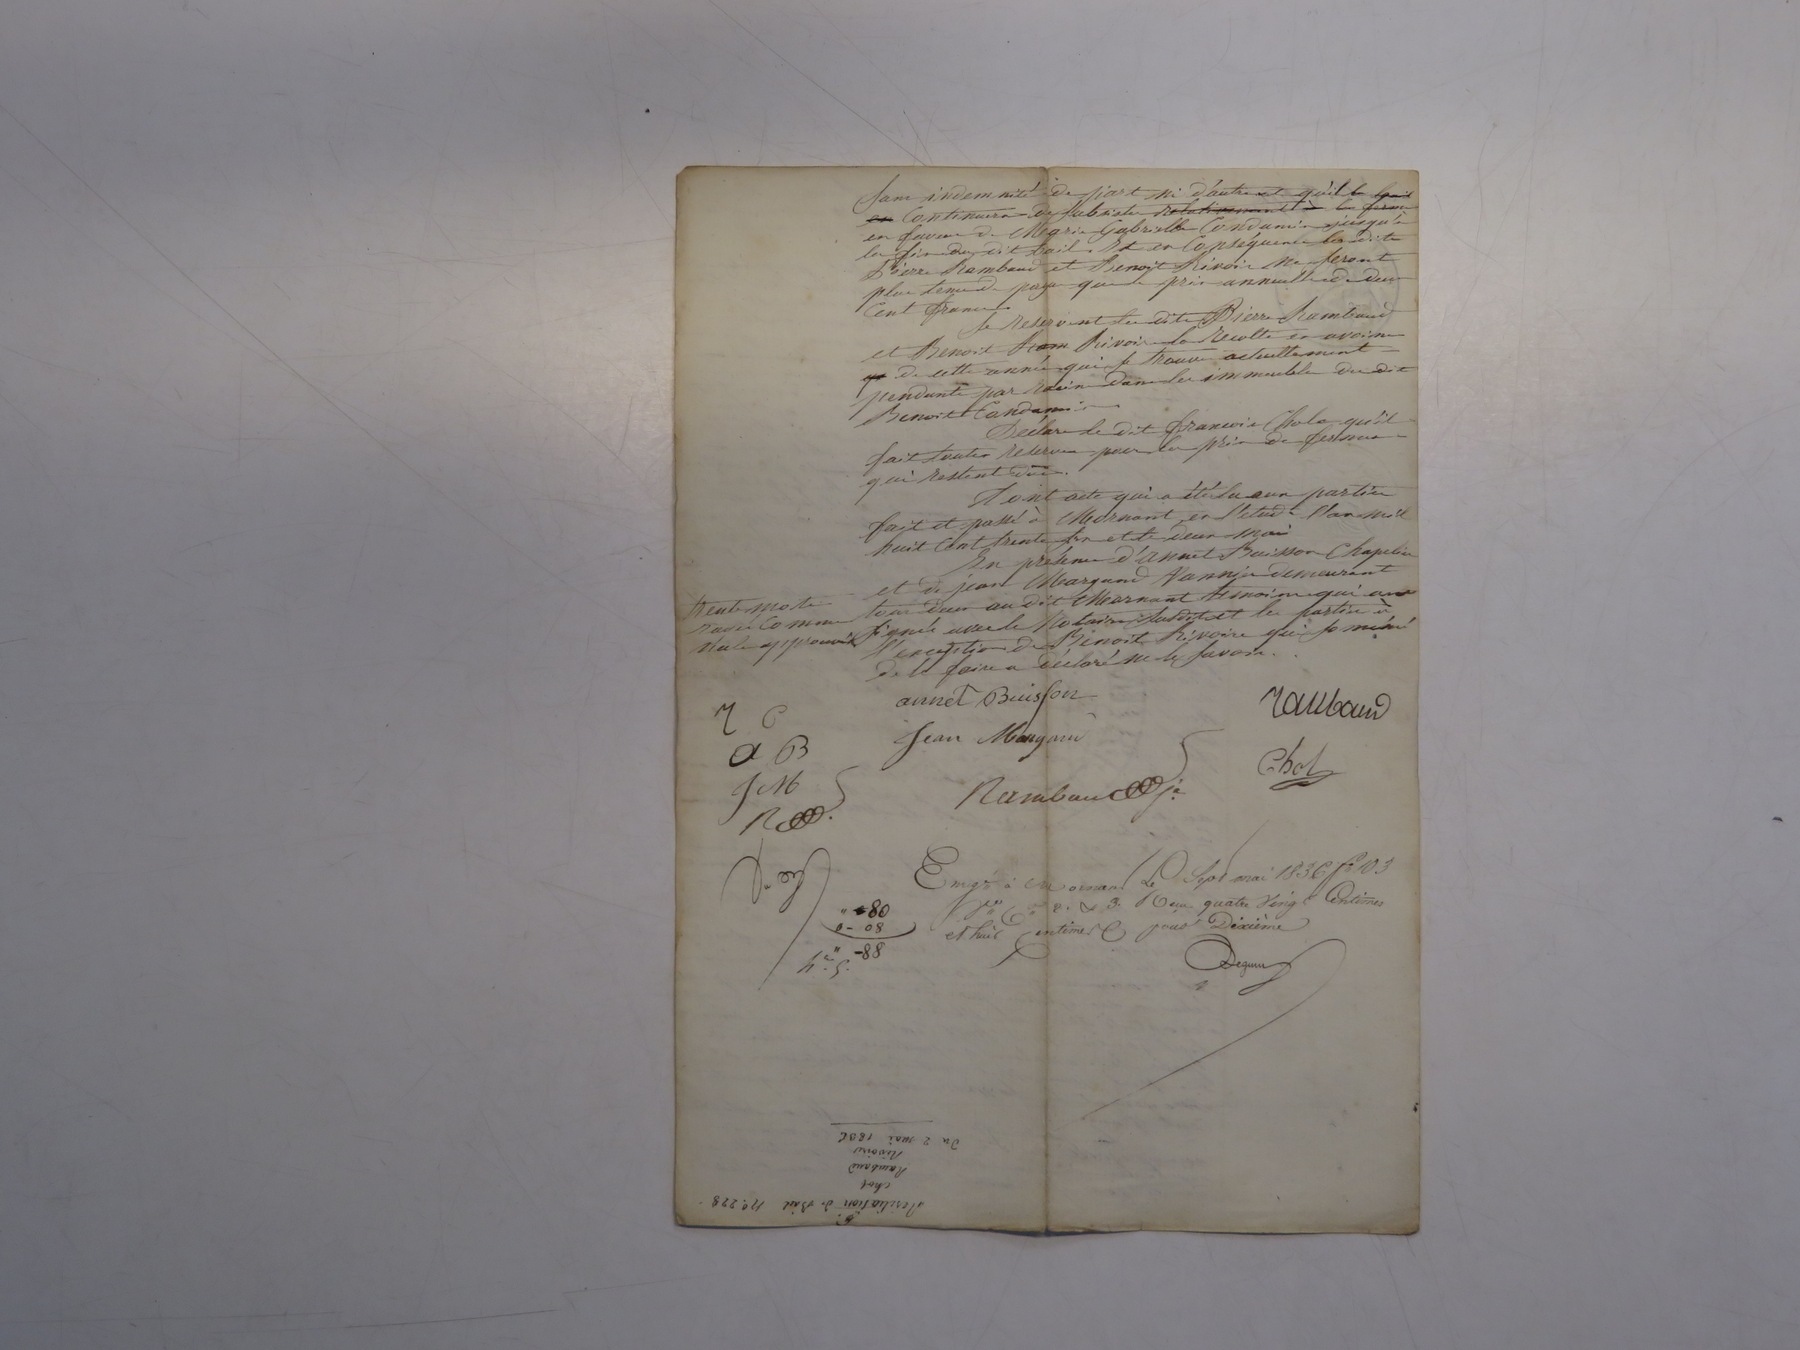 sans indemnité de part ni d'autre et qu'il le
continuera de subsister la ferme
en faveur de Marie Gabrielle Condamin jusqu'à
la fin du dit bail. Et en Conséquence les dits
Pierre Rambaud et Benoit Rivoire ne seront
plus tenus de payer que le prix annuelle de deux
Cent francs.
Se réservent les dits Pierre Rambaud
et Benoit Rivoire la Recolte en avoine
de cette année qui se trouve actuellement
pendante par racine dans les immeuble du dit
Benoit Condamin.
Déclare le dit francois Chol qu'il
fait toutes réserves pour les prix de fermes
qui restent dûs.
Dont acte qui a été lu aux parties
fait et passé à Mornant en l'etude l'an mil
huit Cent trente six et le deux mai
En présence d'annet Buisson Chapelier
et de jean Margand demeurant
tous deux au dit Mornant temoins qui ont
signés avec le Notaire susdit et les parties à
l'exception de Benoit Rivoire qui
de le faire a déclaré ne le savoir.
trente mots
rayés Comme
nuls approuvés
annet Buisson
Rambaud
Jean Margand
Chol
Rambaud
R C
a B
J M
R
Enregé à Mornant Le Sept mai 1836 f° 103
Reçu quatre vingt Centimes
et huit Centimes pour Dixième
80
80
88
Resiliation de Bail N° 228
Chol
Rambaud
Rivoire
Du 2 mai 1836